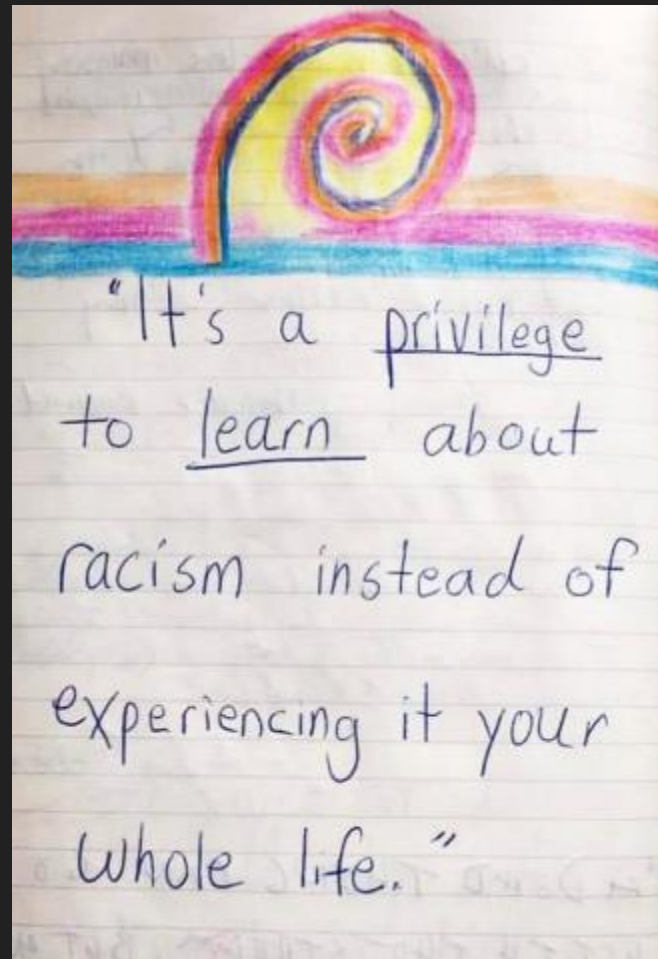 "It's a privilege
to learn about
racism instead of
experiencing it your
whole life."